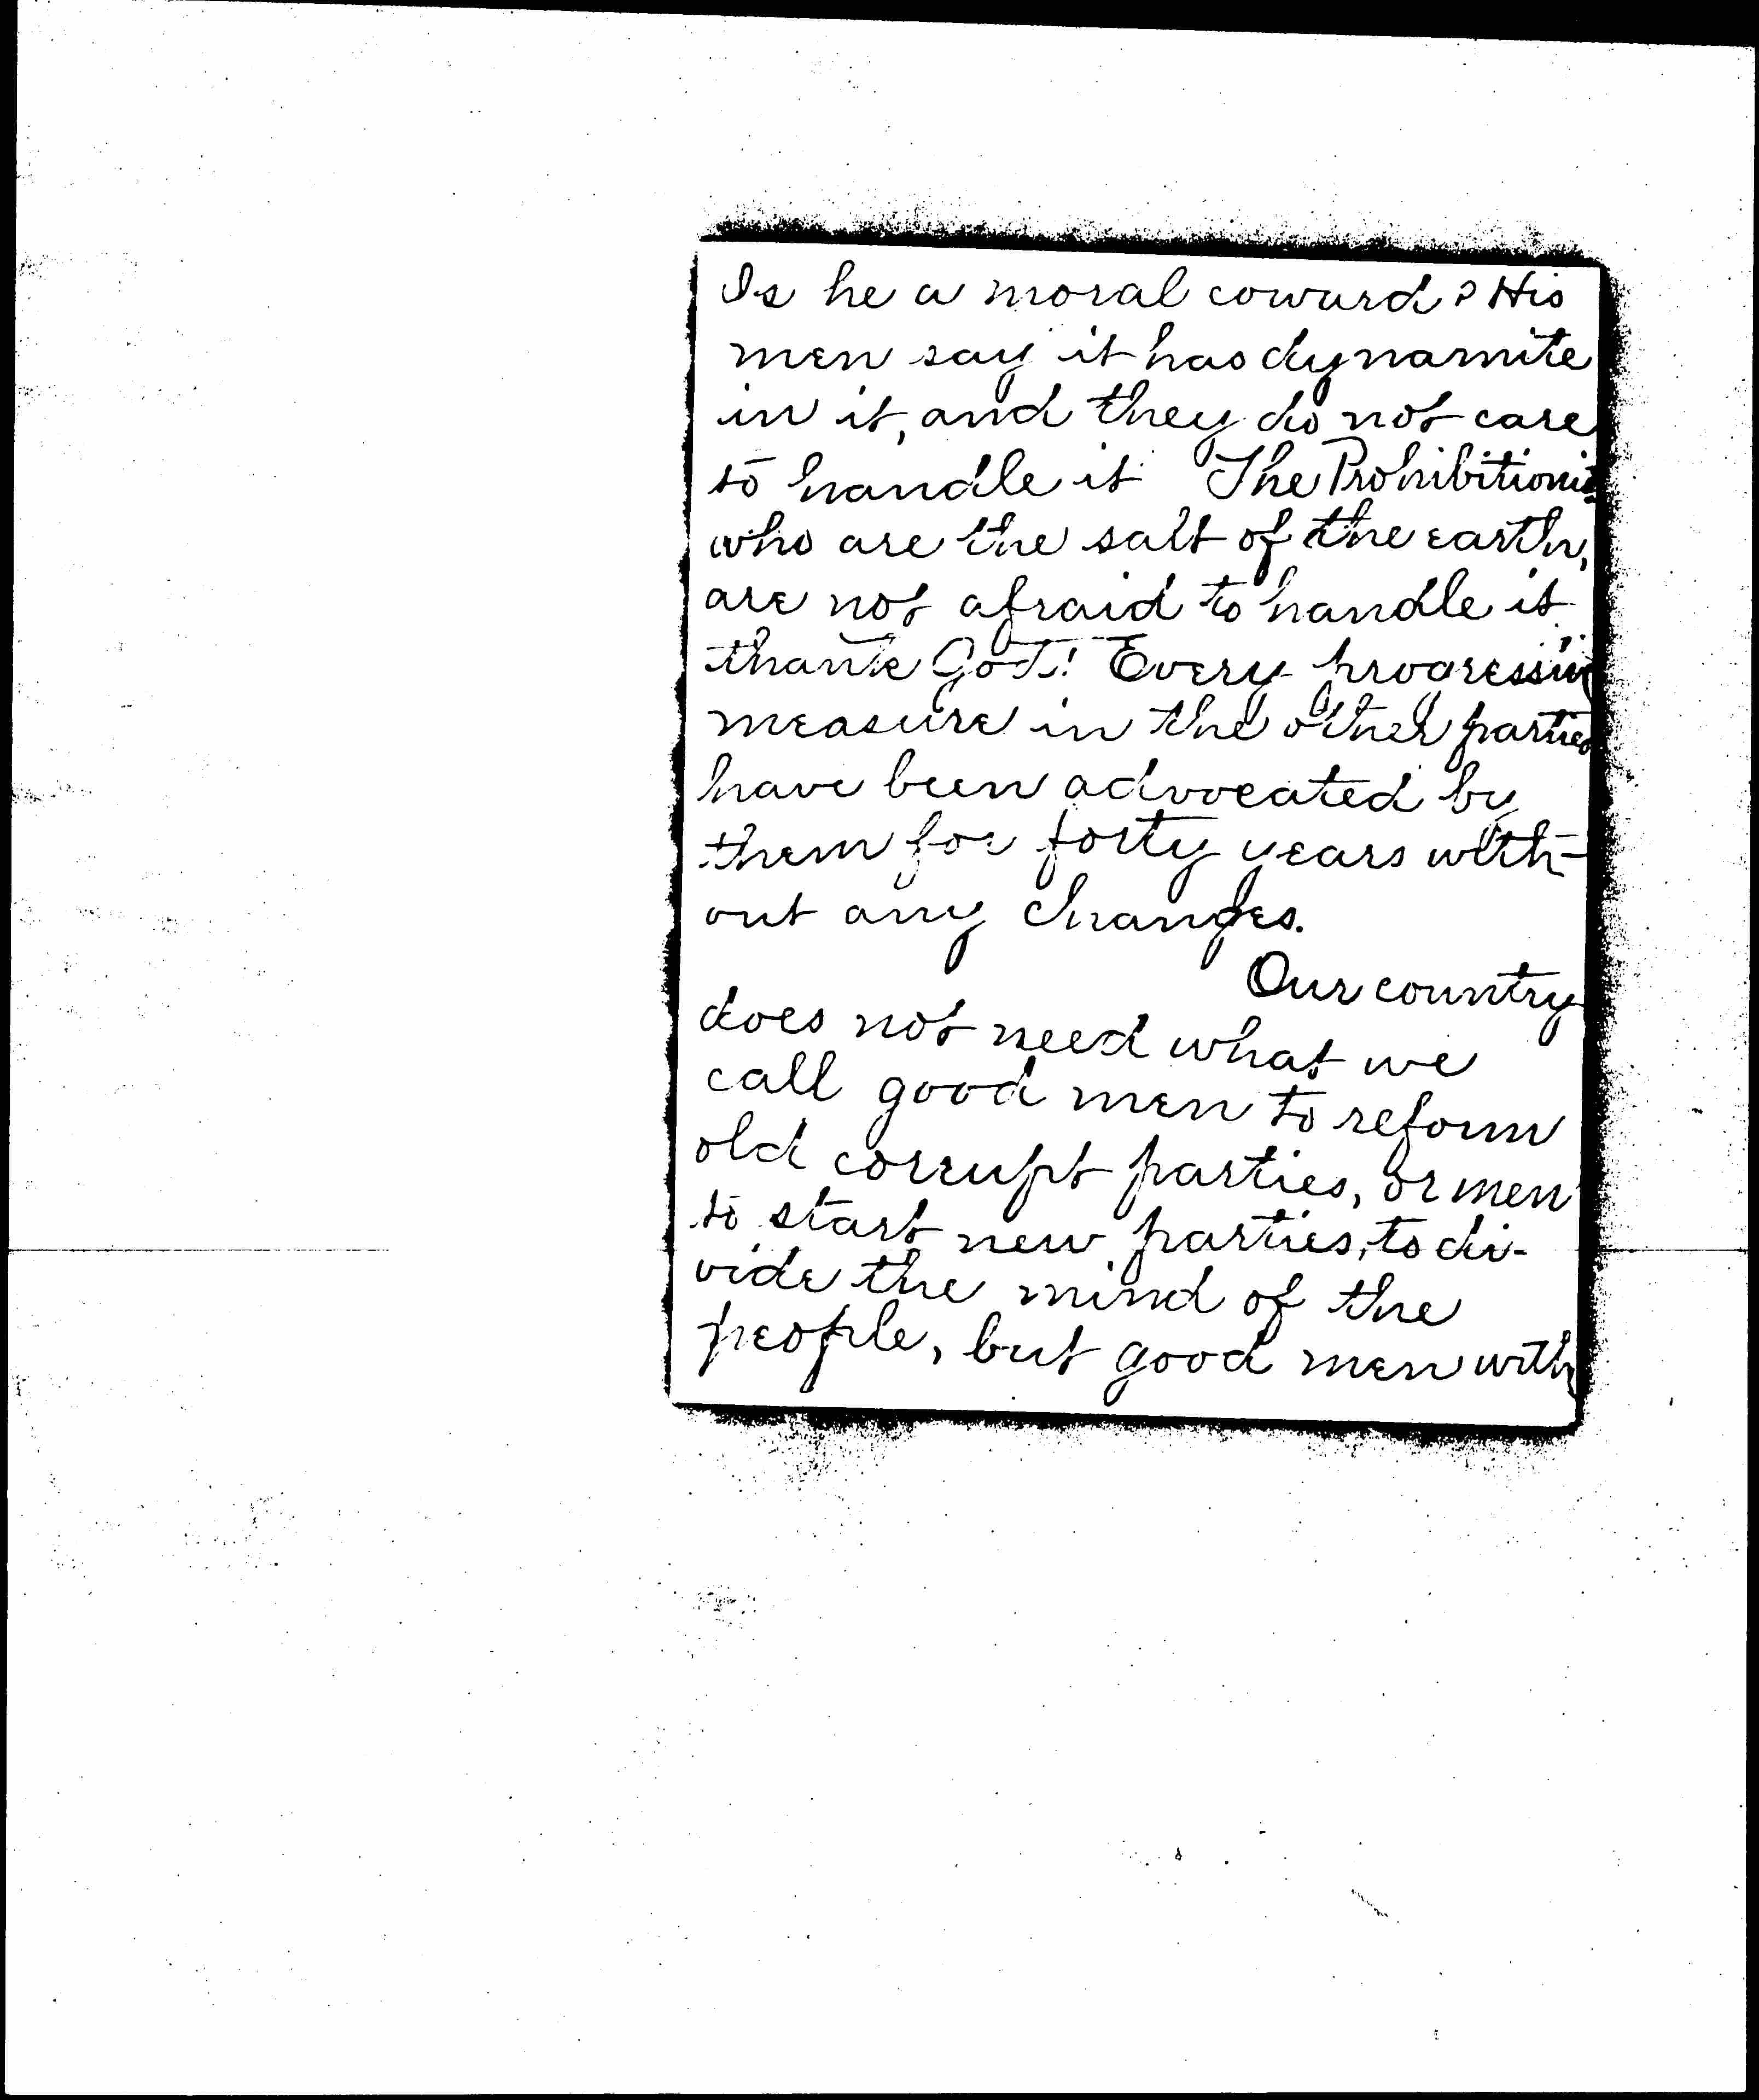 Is he a moral coward? His
men say it has dynamite
in it, and they do not care
to handle it The Prohibitionist
who are the salt of the earth,
are not afraid to handle it
thank God! Every progressive
measure in the other parties
have been advocated by
them for forty years with-
out any changes.
Our country
does not need what we
call good men to reform
old corrupt parties, or men
to start new parties, to di-
vide the mind of the
people, but good men with